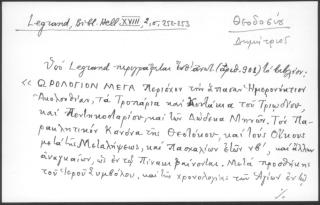 Legrand, Bibl. Hell. XVIII, 2, σ. 252-253
Θεοδοσίου
Δημήτριος
Ὑπὸ Legrand περιγράφεται (ἀριθ. 901) τὸ βιβλίον:
« ΩΡΟΛΟΓΙΟΝ ΜΕΓΑ Περιέχον τὴν ἅπασαν Ἡμερονύκτιον
Ἀκολουθίαν, τὰ Τροπάρια καὶ Κοντάκια τοῦ Τριωδίου,
καὶ Πεντηκοσταρίου, καὶ τῶν Δώδεκα Μηνῶν. Τὸν Πα-
ρακλητικὸν Κανόνα τῆς Θεοτόκου, καὶ τοὺς Οἴκους
μετὰ τῆς Μεταλήψεως, καὶ Πασχαλίων ἐτῶν νβ', καὶ ἄλλων
ἀναγκαίων, ὡς ἐν τῷ Πίνακι φαίνονται. Μετὰ προσθήκης
τοῦ Ἱεροῦ Συμβόλου, καὶ τῆς χρονολογίας τῶν Ἁγίων ἐν ᾧ
./.